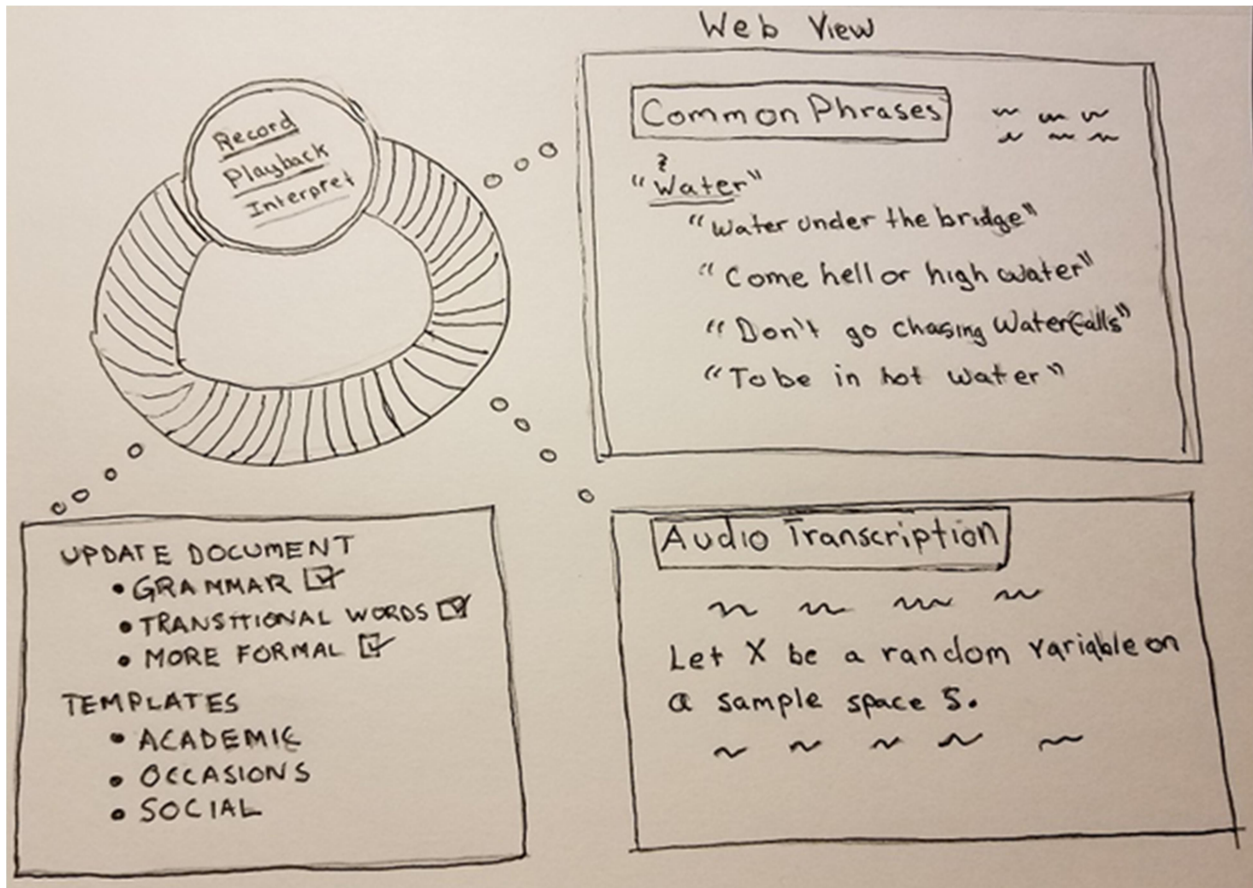 Web View
Record
Playback
Interpret
Common Phrases
"Water"
"Water under the bridge"
"Come hell or high water"
"Don't go chasing Waterfalls"
"To be in hot water"
UPDATE DOCUMENT
• GRAMMAR ☑
• TRANSITIONAL WORDS ☑
• MORE FORMAL ☑
TEMPLATES
• ACADEMIC
• OCCASIONS
• SOCIAL
Audio Transcription
Let X be a random variable on
a sample space S.